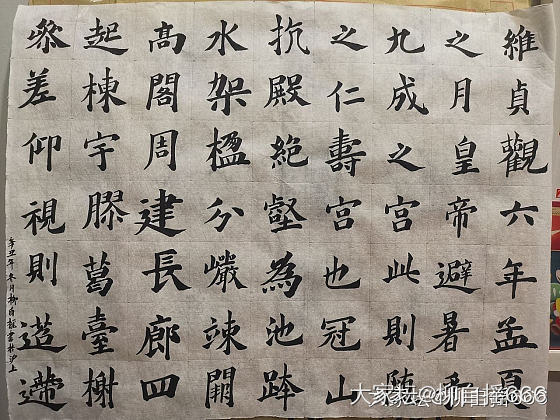 維貞觀六年孟夏
之月皇帝避暑乎
九成之宮此則隨
之仁壽宮也冠山
抗殿絕壑為池跨
水架楹分巖竦闕
高閣周建長廊四
起棟宇膠葛臺榭
參差仰視則迢遰
辛丑年冬月柳自書於沪上
大家坛@柳自摇666